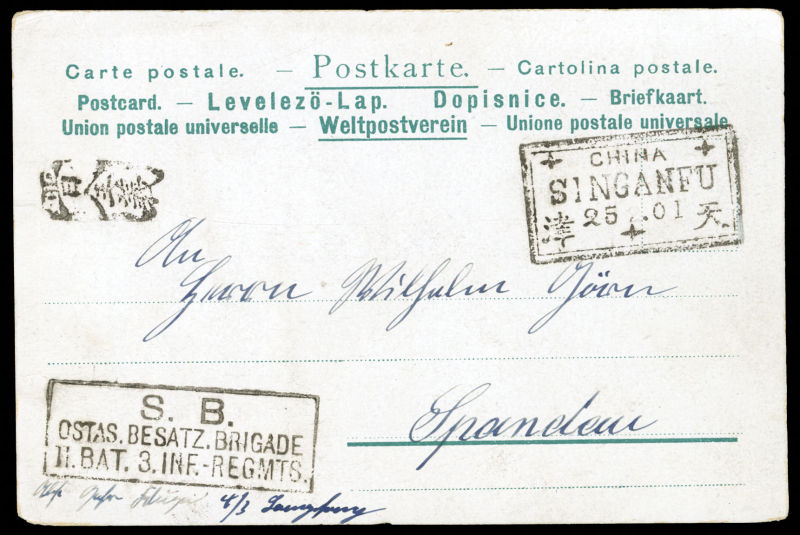 Carte postale. — Postkarte. — Cartolina postale.
Postcard. — Levelezö-Lap. Dopisnice. — Briefkaart.
Union postale universelle — Weltpostverein — Unione postale universale
CHINA
SINGANFU
25 .01
津 天
An
Herrn Wilhelm Jörn
Spandau
S. B.
OSTAS. BESATZ. BRIGADE
II. BAT. 3. INF.-REGMTS.